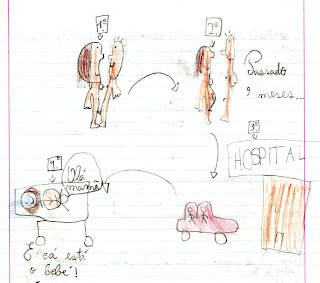 1º
2º
Passado
9 meses...
3º
HOSPITAL
4º
Olá
mamã
E cá está
o bebé!